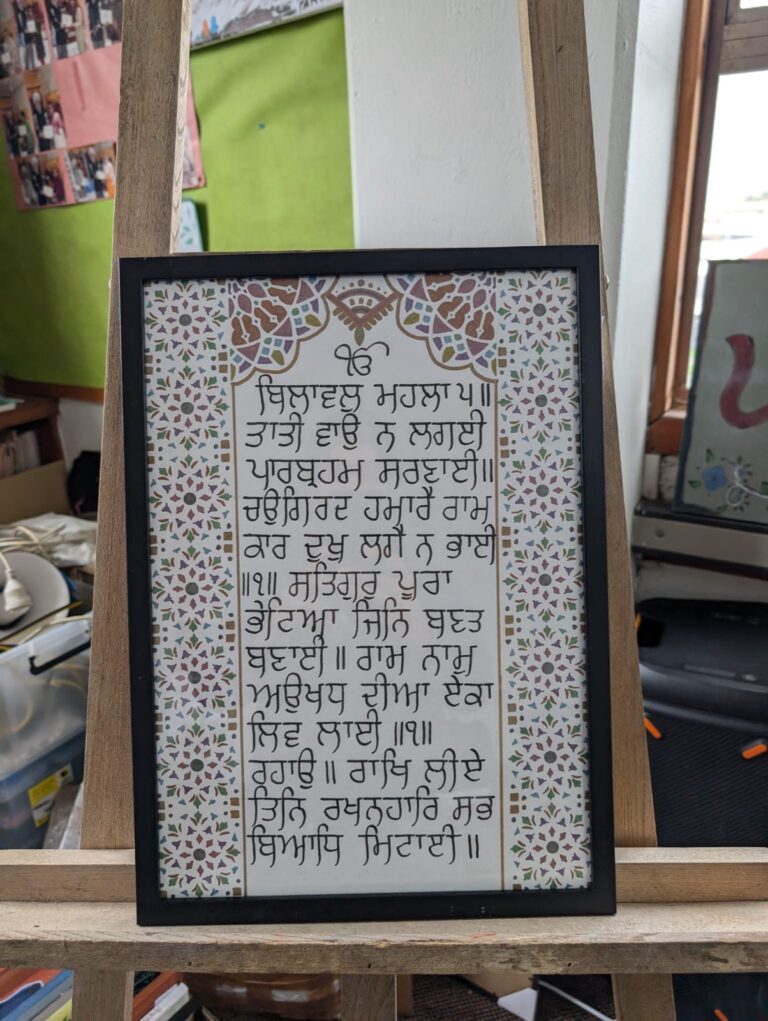 ੴ
ਬਿਲਾਵਲੁ ਮਹਲਾ ੫॥
ਤਾਤੀ ਵਾਉ ਨ ਲਗਈ
ਪਾਰਬ੍ਰਹਮ ਸਰਣਾਈ॥
ਚਉਗਿਰਦ ਹਮਾਰੈ ਰਾਮ
ਕਾਰ ਦੁਖੁ ਲਗੈ ਨ ਭਾਈ
॥੧॥ ਸਤਿਗੁਰੁ ਪੂਰਾ
ਭੇਟਿਆ ਜਿਨਿ ਬਣਤ
ਬਣਾਈ॥ ਰਾਮ ਨਾਮੁ
ਅਉਖਧ ਦੀਆ ਏਕਾ
ਲਿਵ ਲਾਈ ॥੧॥
ਰਹਾਉ॥ ਰਾਖਿ ਲੀਏ
ਤਿਨਿ ਰਖਨਹਾਰਿ ਸਭ
ਬਿਆਧਿ ਮਿਟਾਈ॥